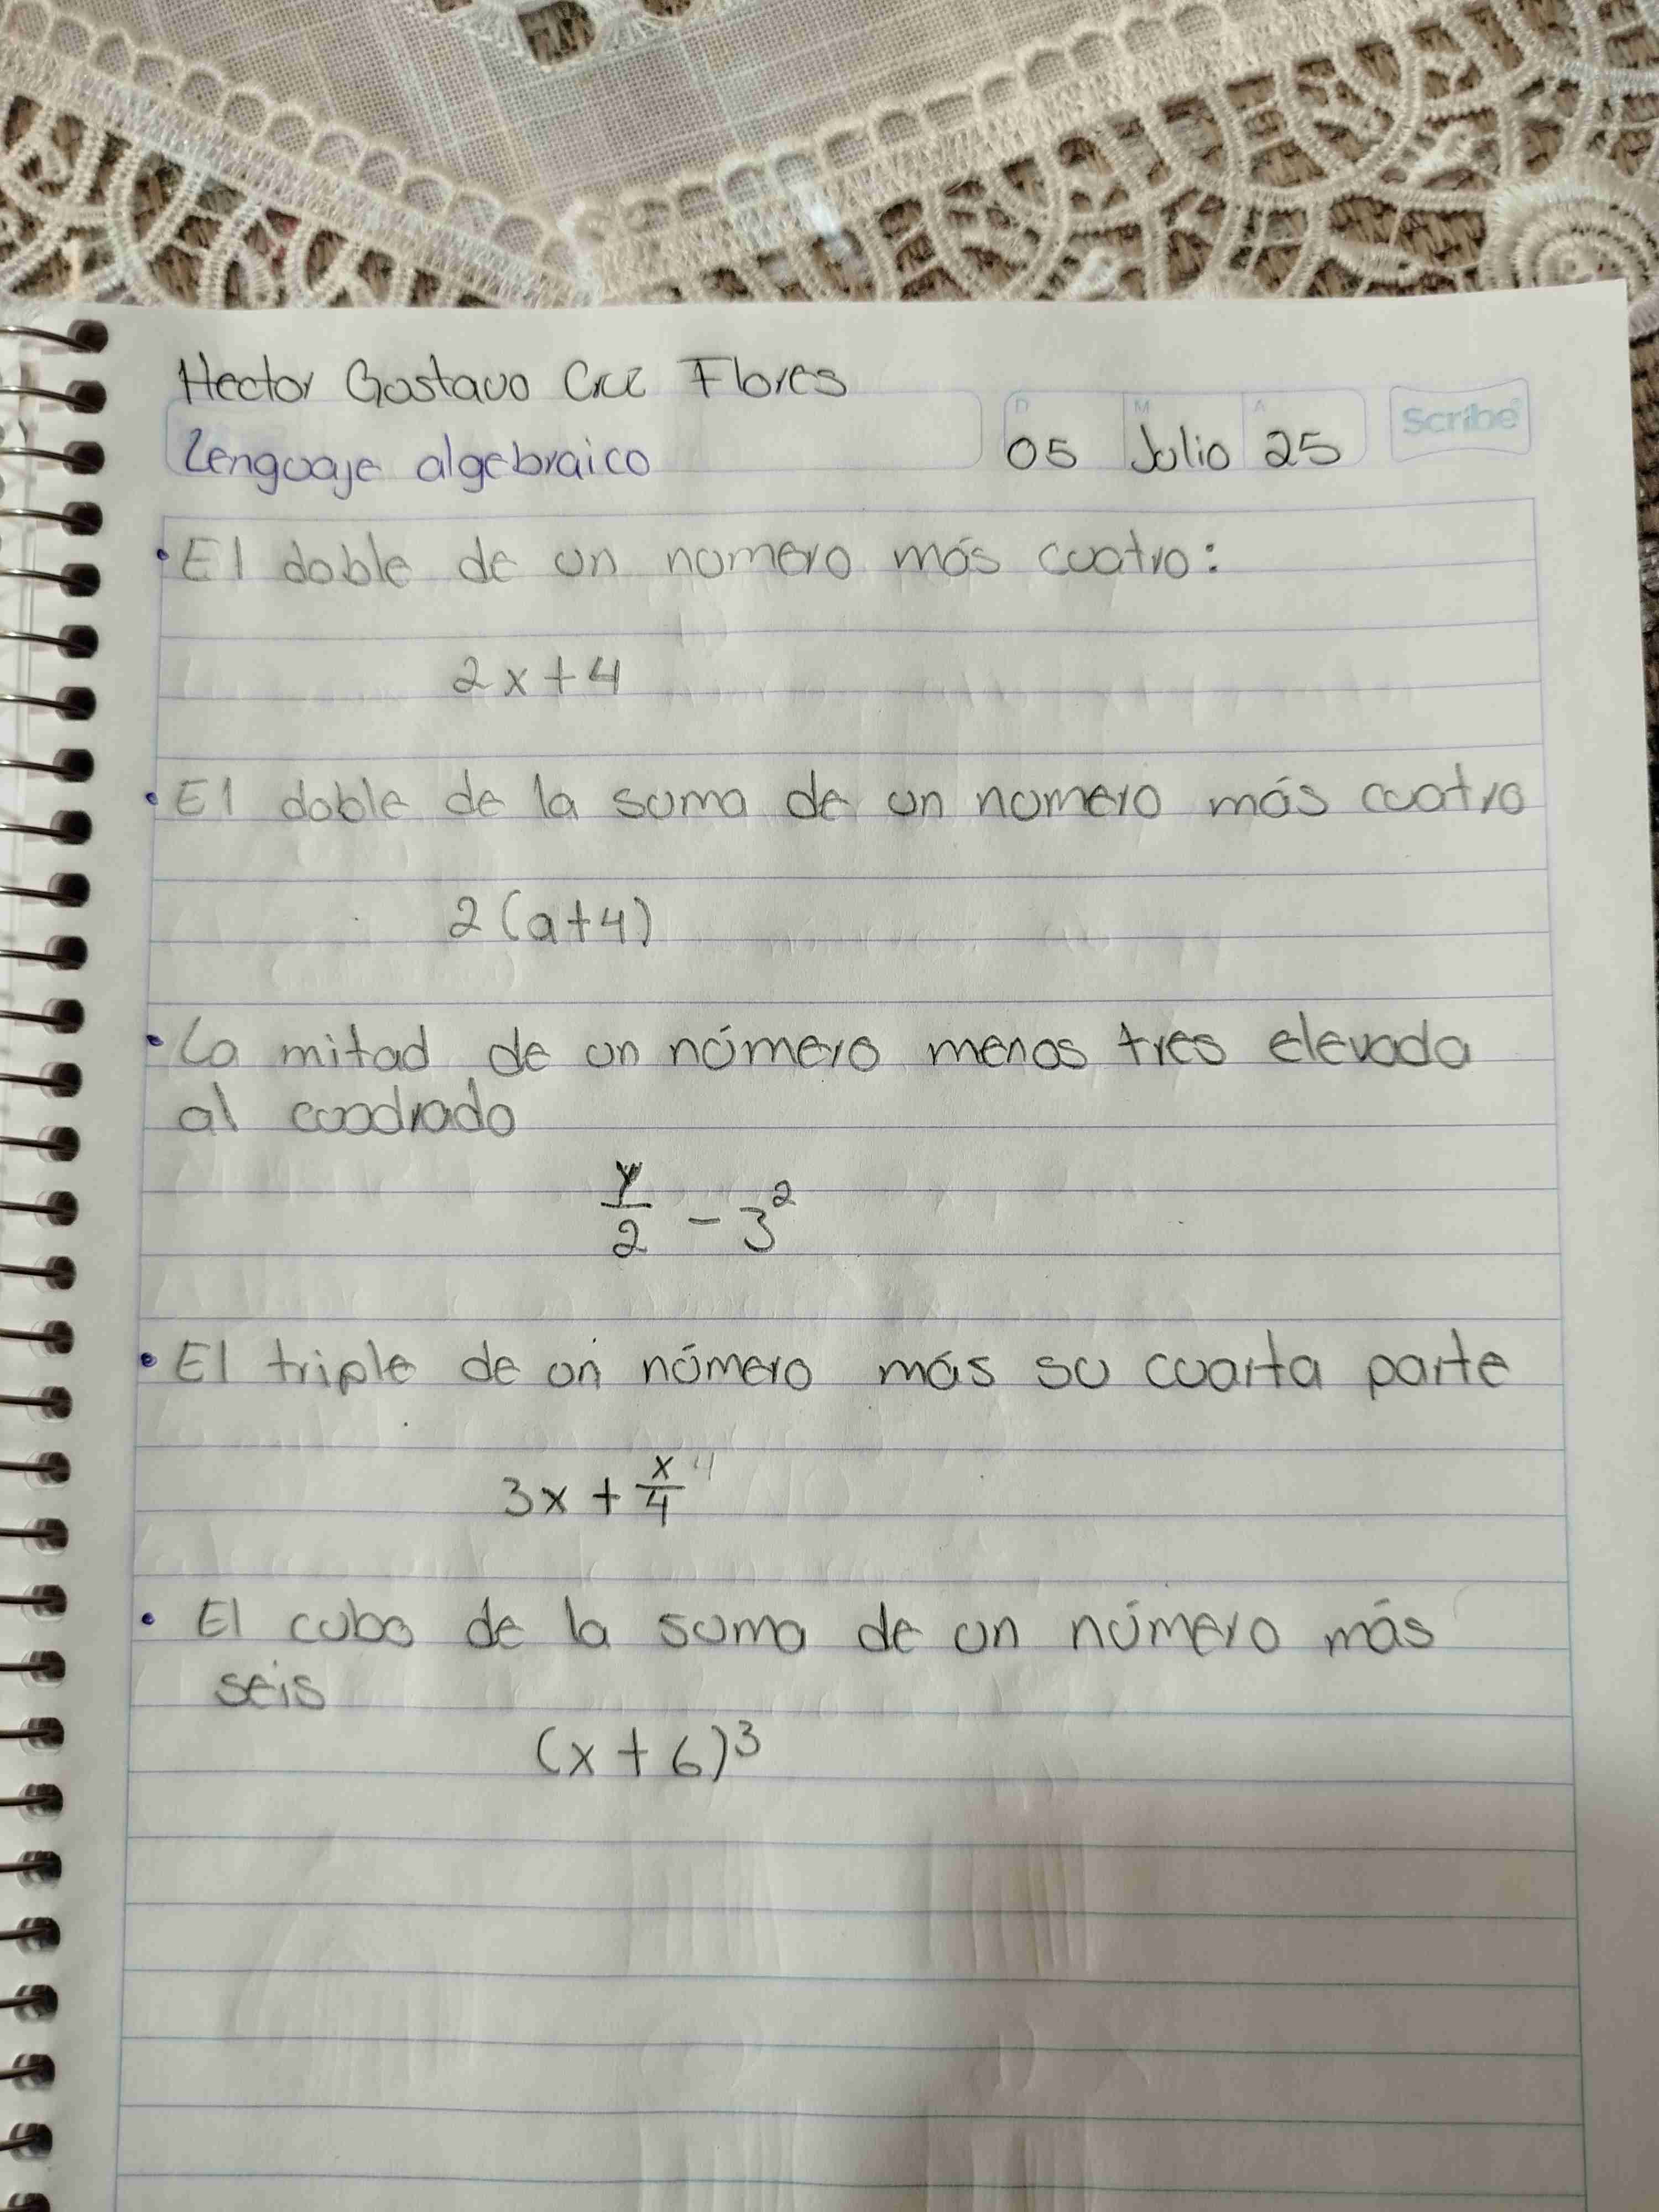 Hector Gustavo Cruz Flores
D M A Scribe
Lenguaje algebraico 05 Julio 25
• El doble de un numero más cuatro:
2x+4
• El doble de la suma de un numero más cuatro
2(a+4)
• La mitad de un número menos tres elevada
al cuadrado
y/2 - 3²
• El triple de un número más su cuarta parte
3x + x/4
• El cubo de la suma de un número más
seis
(x+6)³